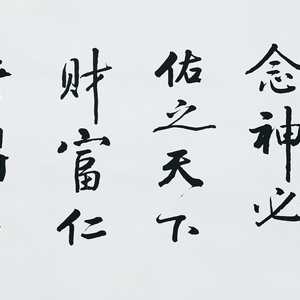 念神必
佑之天下
财富仁